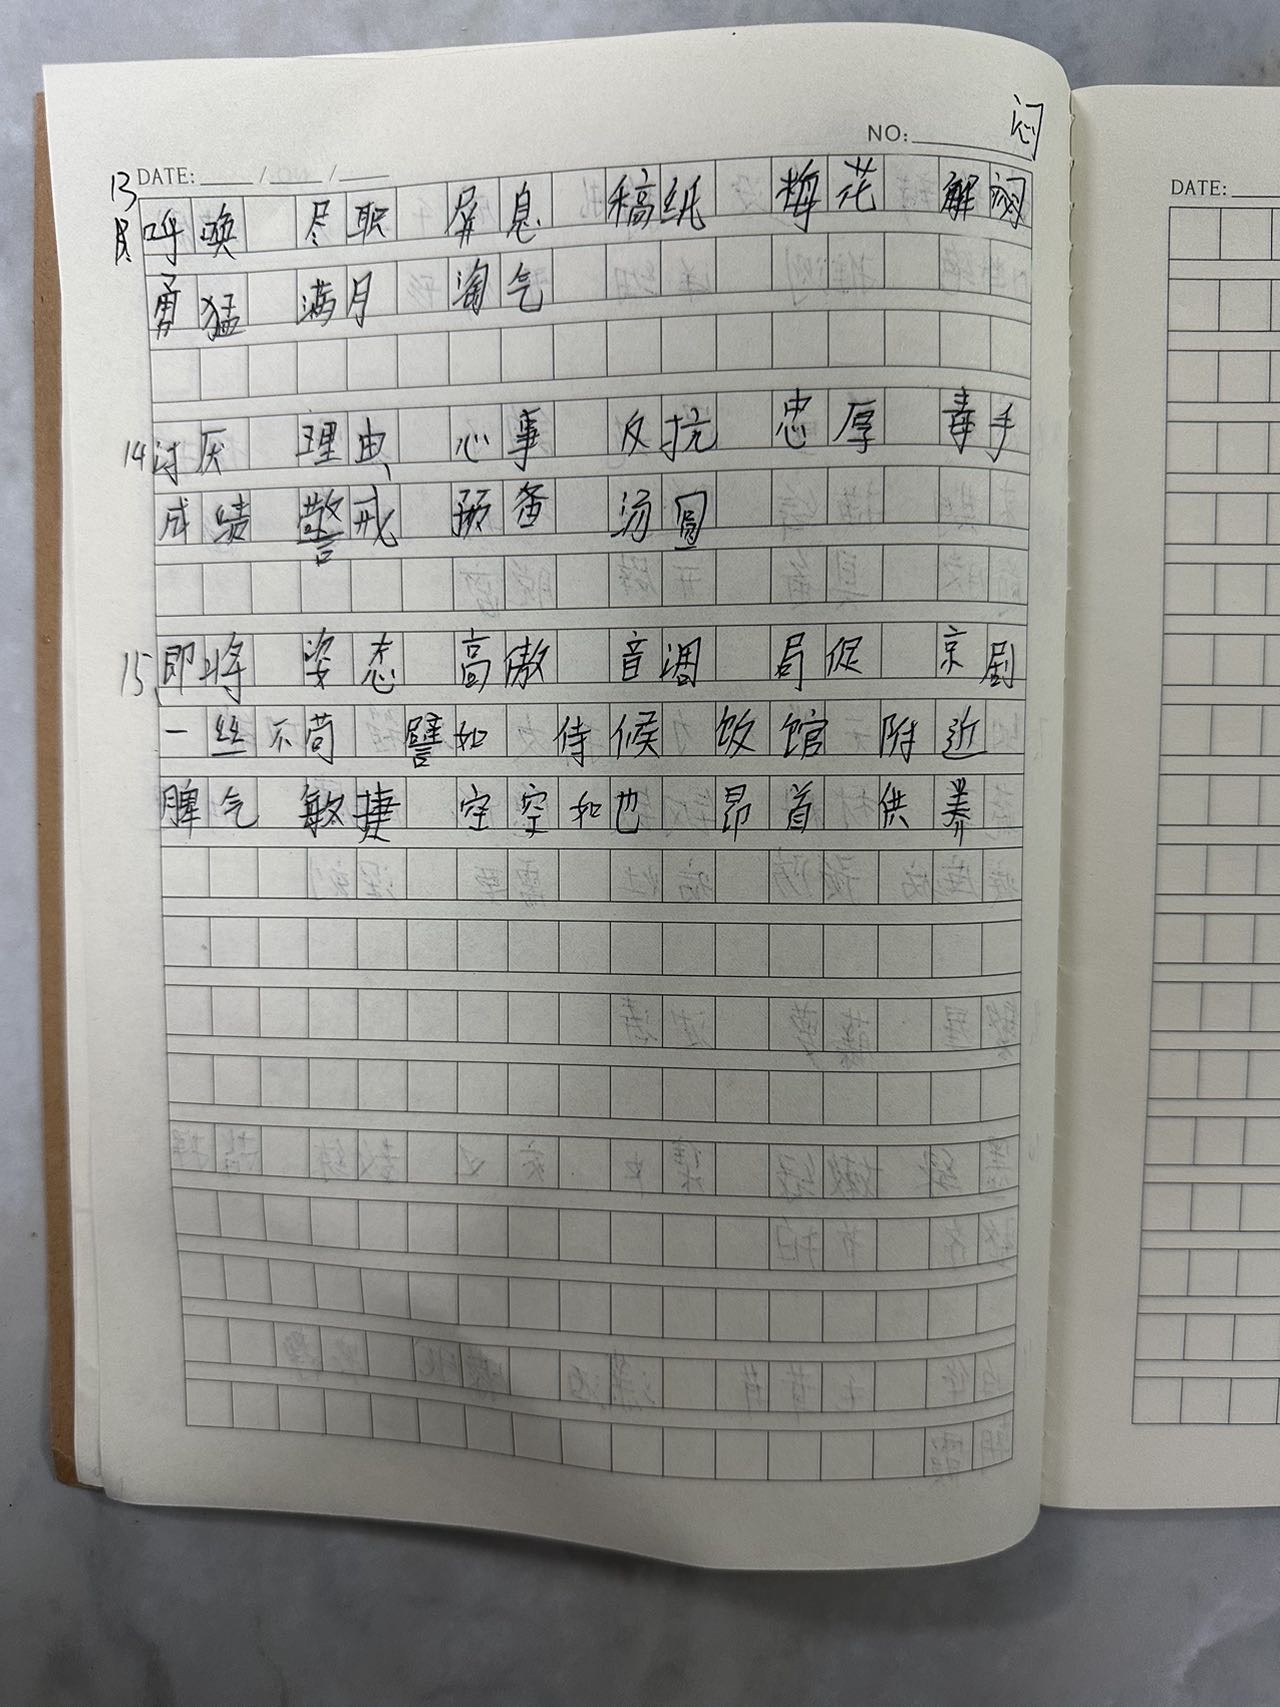 NO: 闷
DATE: / /
13 呼唤 尽职 屏息 稿纸 梅花 解闷
勇猛 满月 淘气
14 讨厌 理由 心事 反抗 忠厚 毒手
成绩 警戒 预备 汤圆
15 即将 姿态 高傲 音调 局促 京剧
一丝不苟 譬如 侍候 饭馆 附近
脾气 敏捷 空空如也 昂首 供养
DATE: